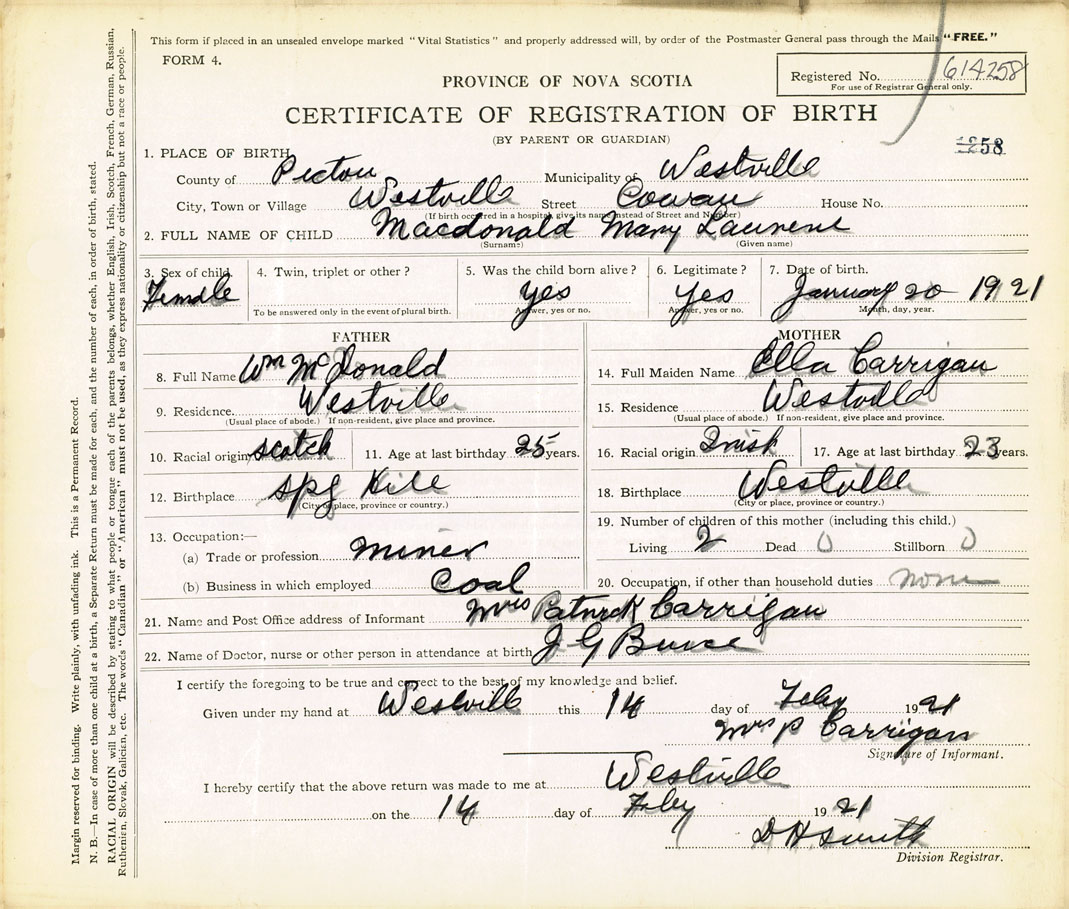 This form if placed in an unsealed envelope marked "Vital Statistics" and properly addressed will, by order of the Postmaster General pass through the Mails "FREE."
FORM 4.
Registered No. 614258
For use of Registrar General only.
PROVINCE OF NOVA SCOTIA
CERTIFICATE OF REGISTRATION OF BIRTH
(BY PARENT OR GUARDIAN)
258
1. PLACE OF BIRTH
County of Pictou Municipality of Westville
City, Town or Village Westville Street Cowan House No.
(If birth occurred in a hospital, give its name instead of Street and Number)
2. FULL NAME OF CHILD Macdonald Mary Laurene
(Surname) (Given name)
3. Sex of child. 4. Twin, triplet or other? 5. Was the child born alive? 6. Legitimate? 7. Date of birth.
Female yes yes January 20 1921
To be answered only in the event of plural birth. Answer, yes or no. Answer, yes or no. Month, day, year.
FATHER
8. Full Name Wm McDonald
9. Residence. Westville
(Usual place of abode.) If non-resident, give place and province.
10. Racial origin scotch 11. Age at last birthday 25 years.
12. Birthplace Spg Hill
(City or place, province or country.)
13. Occupation:—
(a) Trade or profession miner
(b) Business in which employed Coal
MOTHER
14. Full Maiden Name Ella Carrigan
15. Residence Westville
(Usual place of abode.) If non-resident, give place and province.
16. Racial origin Irish 17. Age at last birthday 23 years.
18. Birthplace Westville
(City or place, province or country.)
19. Number of children of this mother (including this child.)
Living 2 Dead 0 Stillborn 0
20. Occupation, if other than household duties none
21. Name and Post Office address of Informant Mrs Patrick Carrigan
22. Name of Doctor, nurse or other person in attendance at birth J G
I certify the foregoing to be true and correct to the best of my knowledge and belief.
Given under my hand at Westville this 14 day of Feby 1921
Mrs P Carrigan
Signature of Informant.
I hereby certify that the above return was made to me at Westville
on the 14 day of Feby 1921
D H Smith
Division Registrar.
Margin reserved for binding. Write plainly, with unfading ink. This is a Permanent Record.
N. B.—In case of more than one child at a birth, a Separate Return must be made for each, and the number of each, in order of birth, stated.
RACIAL ORIGIN will be described by stating to what people or tongue each of the parents belongs, whether English, Irish, Scotch, French, German, Russian,
Ruthenian, Slovak, Galician, etc. The words "Canadian" or "American" must not be used, as they express nationality or citizenship but not a race or people.